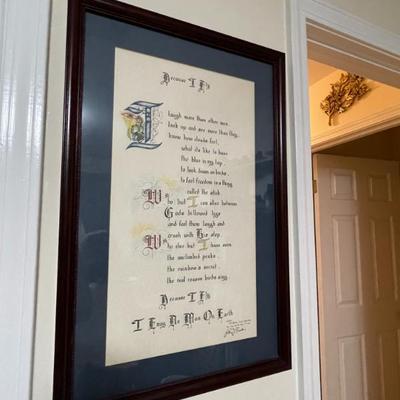 Because I Fly
I laugh more than other men.
look up and see more than they,
know how clouds feel,
what it's like to have
the blue in my lap,
to look down on birds,
to feel freedom in a thing
called the stick.
Who but I can slice between
God's billowed legs
and feel them laugh and
crash with His step.
Who else but I have seen
the unclimbed peaks.
the rainbow's secret.
the real reason birds sing.
Because I Fly
I Envy No Man On Earth